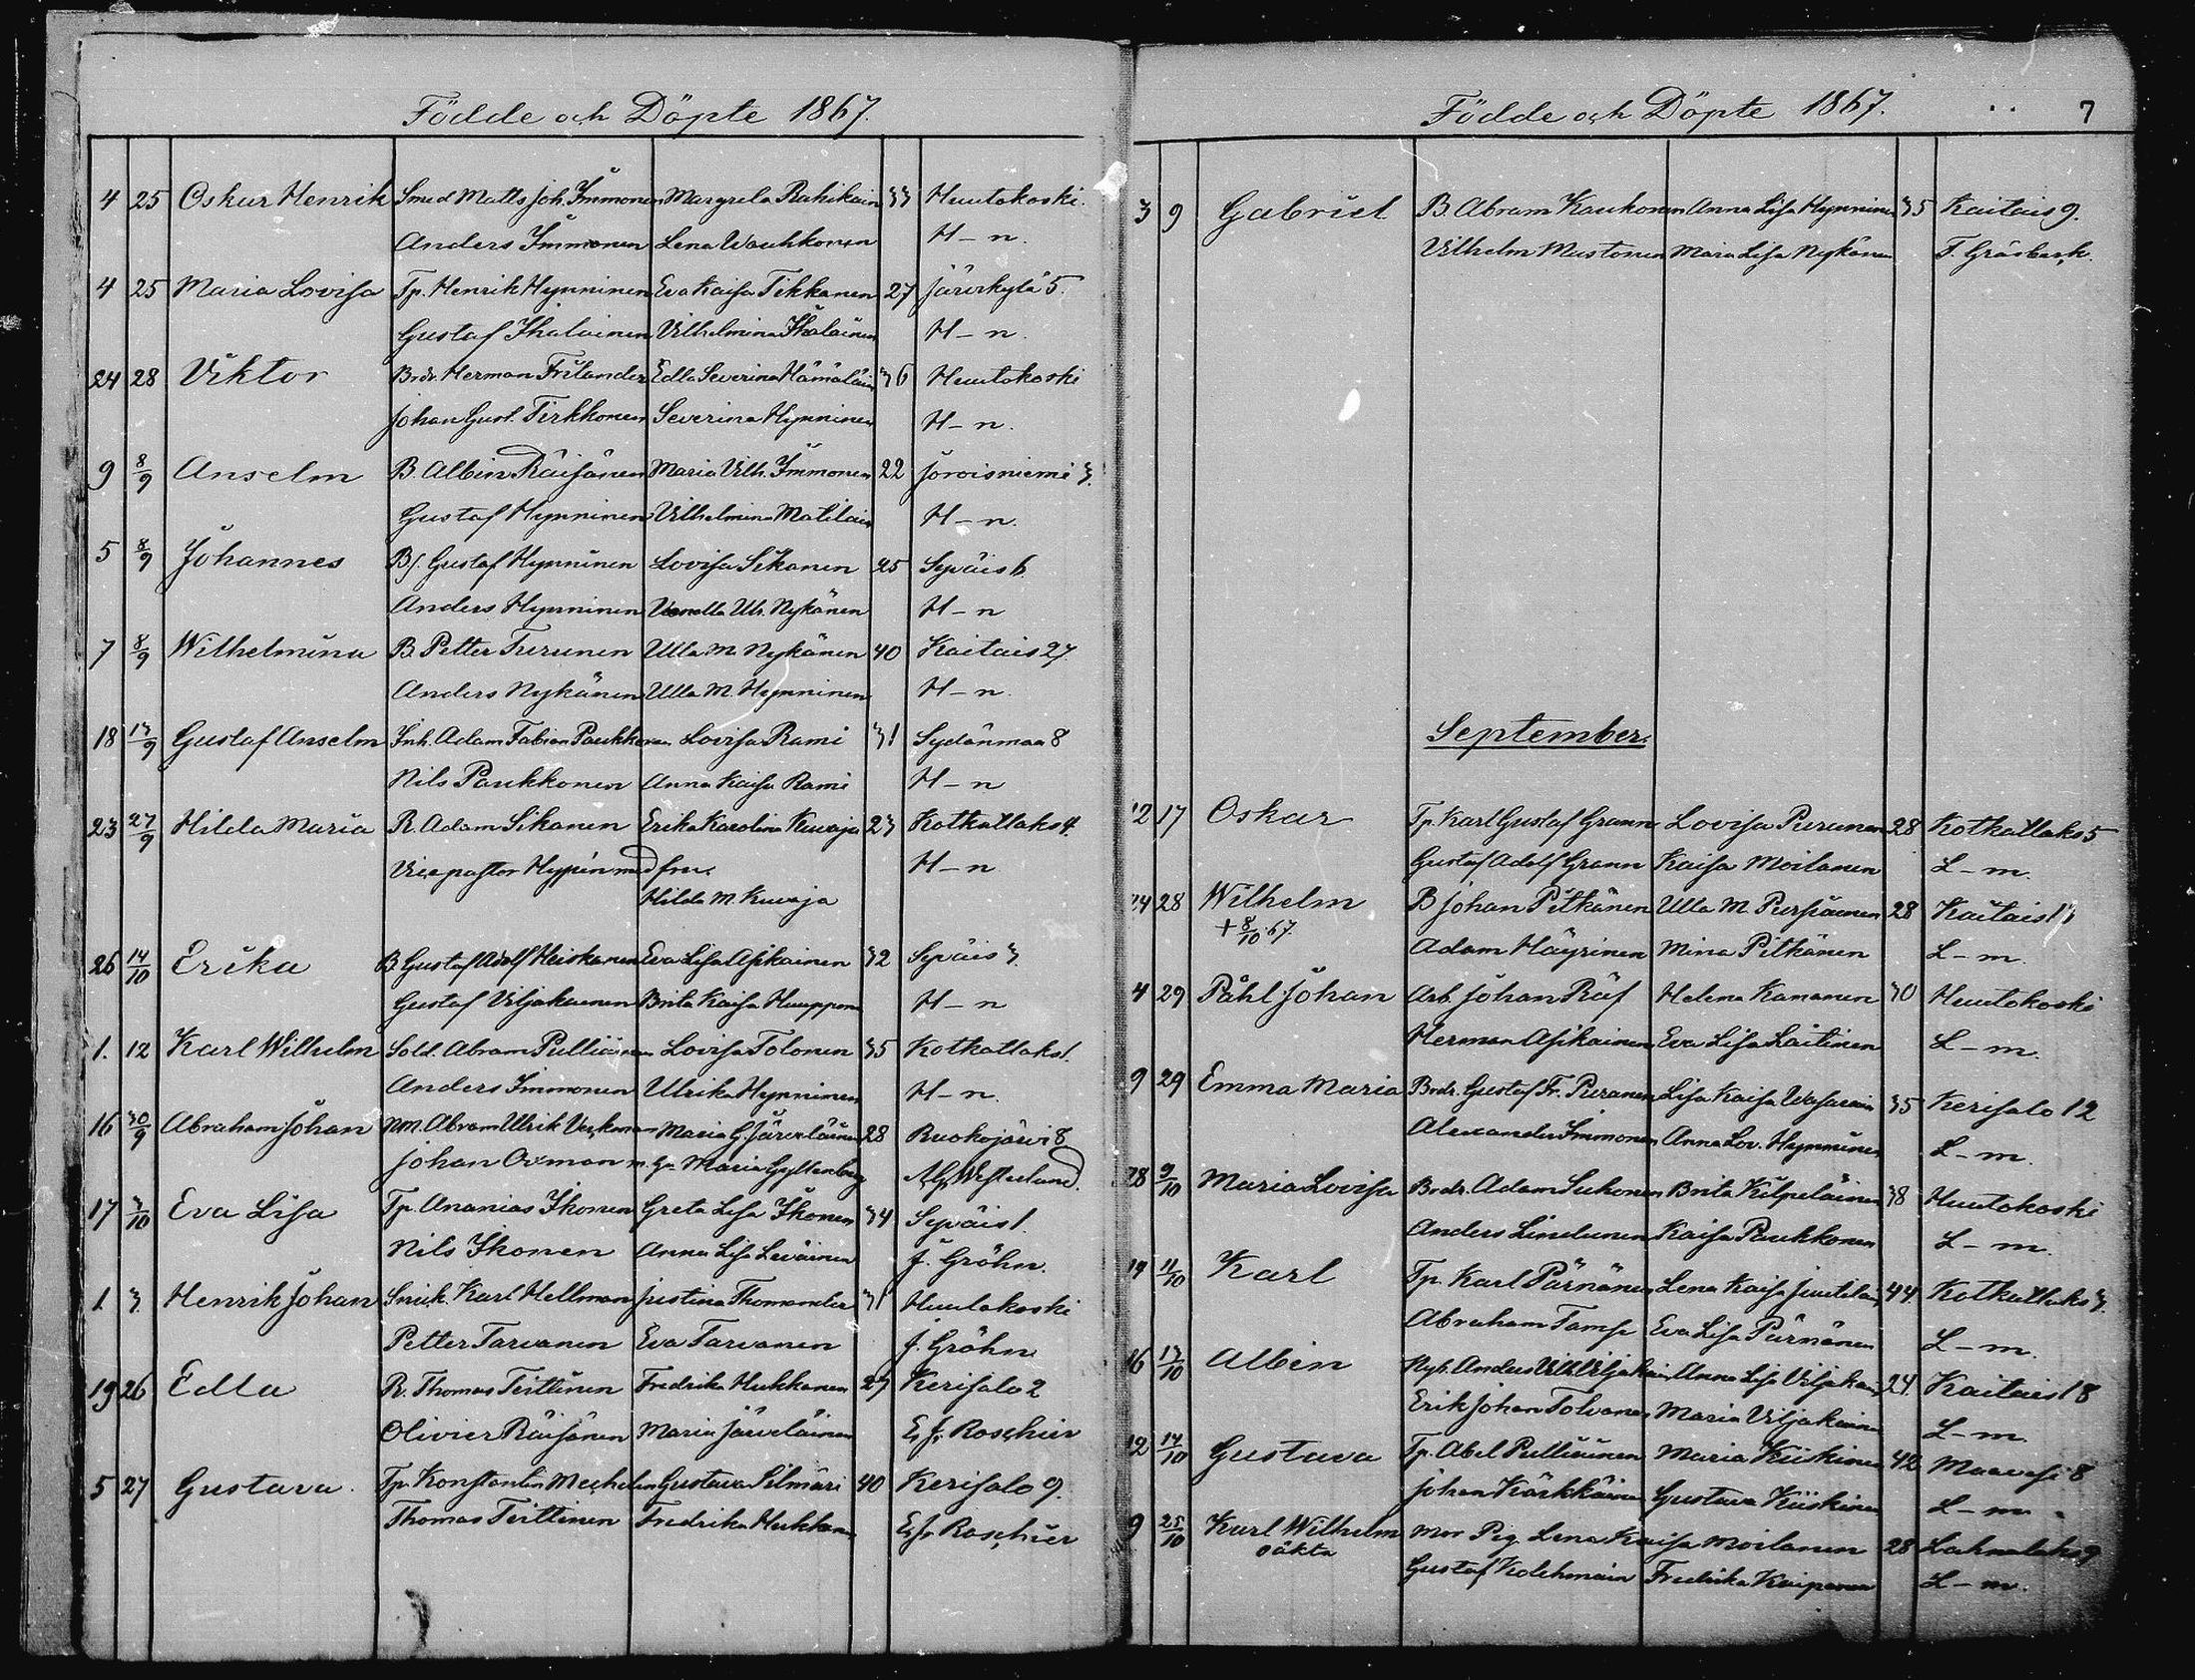 Födde och Döpte 1867.
4 25 Oskar Henrik Smed Matts Joh. Immonen Margreta Rahikain 33 Huutokoski.
Anders Immonen Lena Wauhkonen H-n.
4 25 Maria Lovisa Tp. Henrik Hynninen Eva Kaisa Tikkanen 27 Järvikylä 5.
Gustaf Ihalainen Vilhelmina Ihalainen H-n.
24 28 Viktor Brdr. Herman Frilander Edla Severina Hämäläin 36 Huutokoski
Johan Gust. Tirkkonen Severina Hynninen H-n.
9 8/9 Anselm B. Albin Räisänen Maria Vilh. Immonen 22 Joroisniemi 3.
Gustaf Hynninen Vilhelmina Matilain H-n.
5 8/9 Johannes Bs. Gustaf Hynninen Lovisa Sikanen 25 Sepäis 6
Anders Hynninen Ulr. Nykänen H-n
7 8/9 Wilhelmina B. Petter Turunen Ulla M. Nykänen 40 Kaitais 27.
Anders Nykänen Ulla M. Hynninen H-n.
18 13/9 Gustaf Anselm Inh. Adam Fabian Paukkonen Lovisa Rami 31 Sydänmaa 8
Nils Paukkonen Anna Kaisa Rami H-n
23 27/9 Hilda Maria R. Adam Sikanen Erika Karolina Kuvaja 23 Kotkatlaks 4.
Vicepastor Hyppén med fru. H-n
Hilda M. Kuvaja
26 14/10 Erika B. Gustaf Adolf Heiskanen Eva Lisa Asikainen 32 Sepäis 3.
Gustaf Viljakainen Brita Kaisa Huuppone H-n
1. 12 Karl Wilhelm Sold. Abram Pulliainen Lovisa Tolonen 35 Kotkatlaks 1.
Anders Immonen Ulrika Hynninen H-n.
16 30/9 Abraham Johan Abram Ulrik Maria G. Järveläinen 28 Ruokojärvi 8
Johan Oxman m. Maria Gyllenberg Westerlund.
17 3/10 Eva Lisa Tp. Ananias Ikonen Greta Lisa Ikonen 34 Sepäis 1.
Nils Ikonen Anna Lisa Leväinen J. Gröhn.
1. 3 Henrik Johan Snick. Karl Hellman Justina Thomander 31 Huutokoski
Petter Tarvanen Eva Tarvanen J. Gröhn
19 26 Edla R. Thomas Teittinen Fredrika Hukkanen 27 Kerisalo 2
Olivier Räisänen Maria Järveläinen E. J. Roschier
5 27 Gustava. Tp. Konstantin Mechelin Gustava Silmäri 40 Kerisalo 9.
Thomas Teittinen Fredrika Hukkanen E. J. Roschier
Födde och Döpte 1867. 7
3 9 Gabriel B. Abram Kaukonen Anna Lisa Hynninen 35 Kaitais 9.
Vilhelm Mustonen Maria Lisa Nykänen F. Gräsbeck.
September.
12 17 Oskar Tp. Karl Gustaf Grann Lovisa Purunen 28 Kotkatlaks 5
Gustaf Adolf Grann Kaisa Moilanen L-m.
24 28 Wilhelm B Johan Pitkänen Ulla M. Pursiainen 28 Kaitais 13
+ 8/10 67. Adam Häyrinen Mina Pitkänen L-m.
4 29 Påhl Johan Arb. Johan Räf Helena Kamanen 30 Huutokoski
Herman Asikainen Eva Lisa Laitinen L-m.
9 29 Emma Maria Brdr. Gustaf Fr. Puranen Lisa Kaisa Wasarain 35 Kerisalo 12
Alexander Immonen Anna Lov. Hynninen L-m.
28 9/10 Maria Lovisa Brdr. Adam Suhonen Brita Kilpeläinen 38 Huutokoski
Anders Lindunen Kaisa Paukkonen L-m.
19 11/10 Karl Tp. Karl Pärnänen Lena Kaisa Juutilain 44. Kotkatlaks 3.
Abraham Tamse Eva Lisa Pärnänen L-m.
16 13/10 Albin Nyb. Anders Vilh Viljakain Anna Lisa Viljakain 24. Kaitais 18
Erik Johan Tolvanen Maria Viljakain L-m.
12 14/10 Gustava Tp. Abel Pulliainen Maria Kiiskinen 42 Maavesi 8
Johan Kärkkäinen Gustava Kiiskinen L-m.
9 25/10 Karl Wilhelm Mor Pig. Lena Kaisa Moilanen 28 Lahnalaks 9
oäkta Gustaf Kolehmain Fredrika Kaipanen L-m.